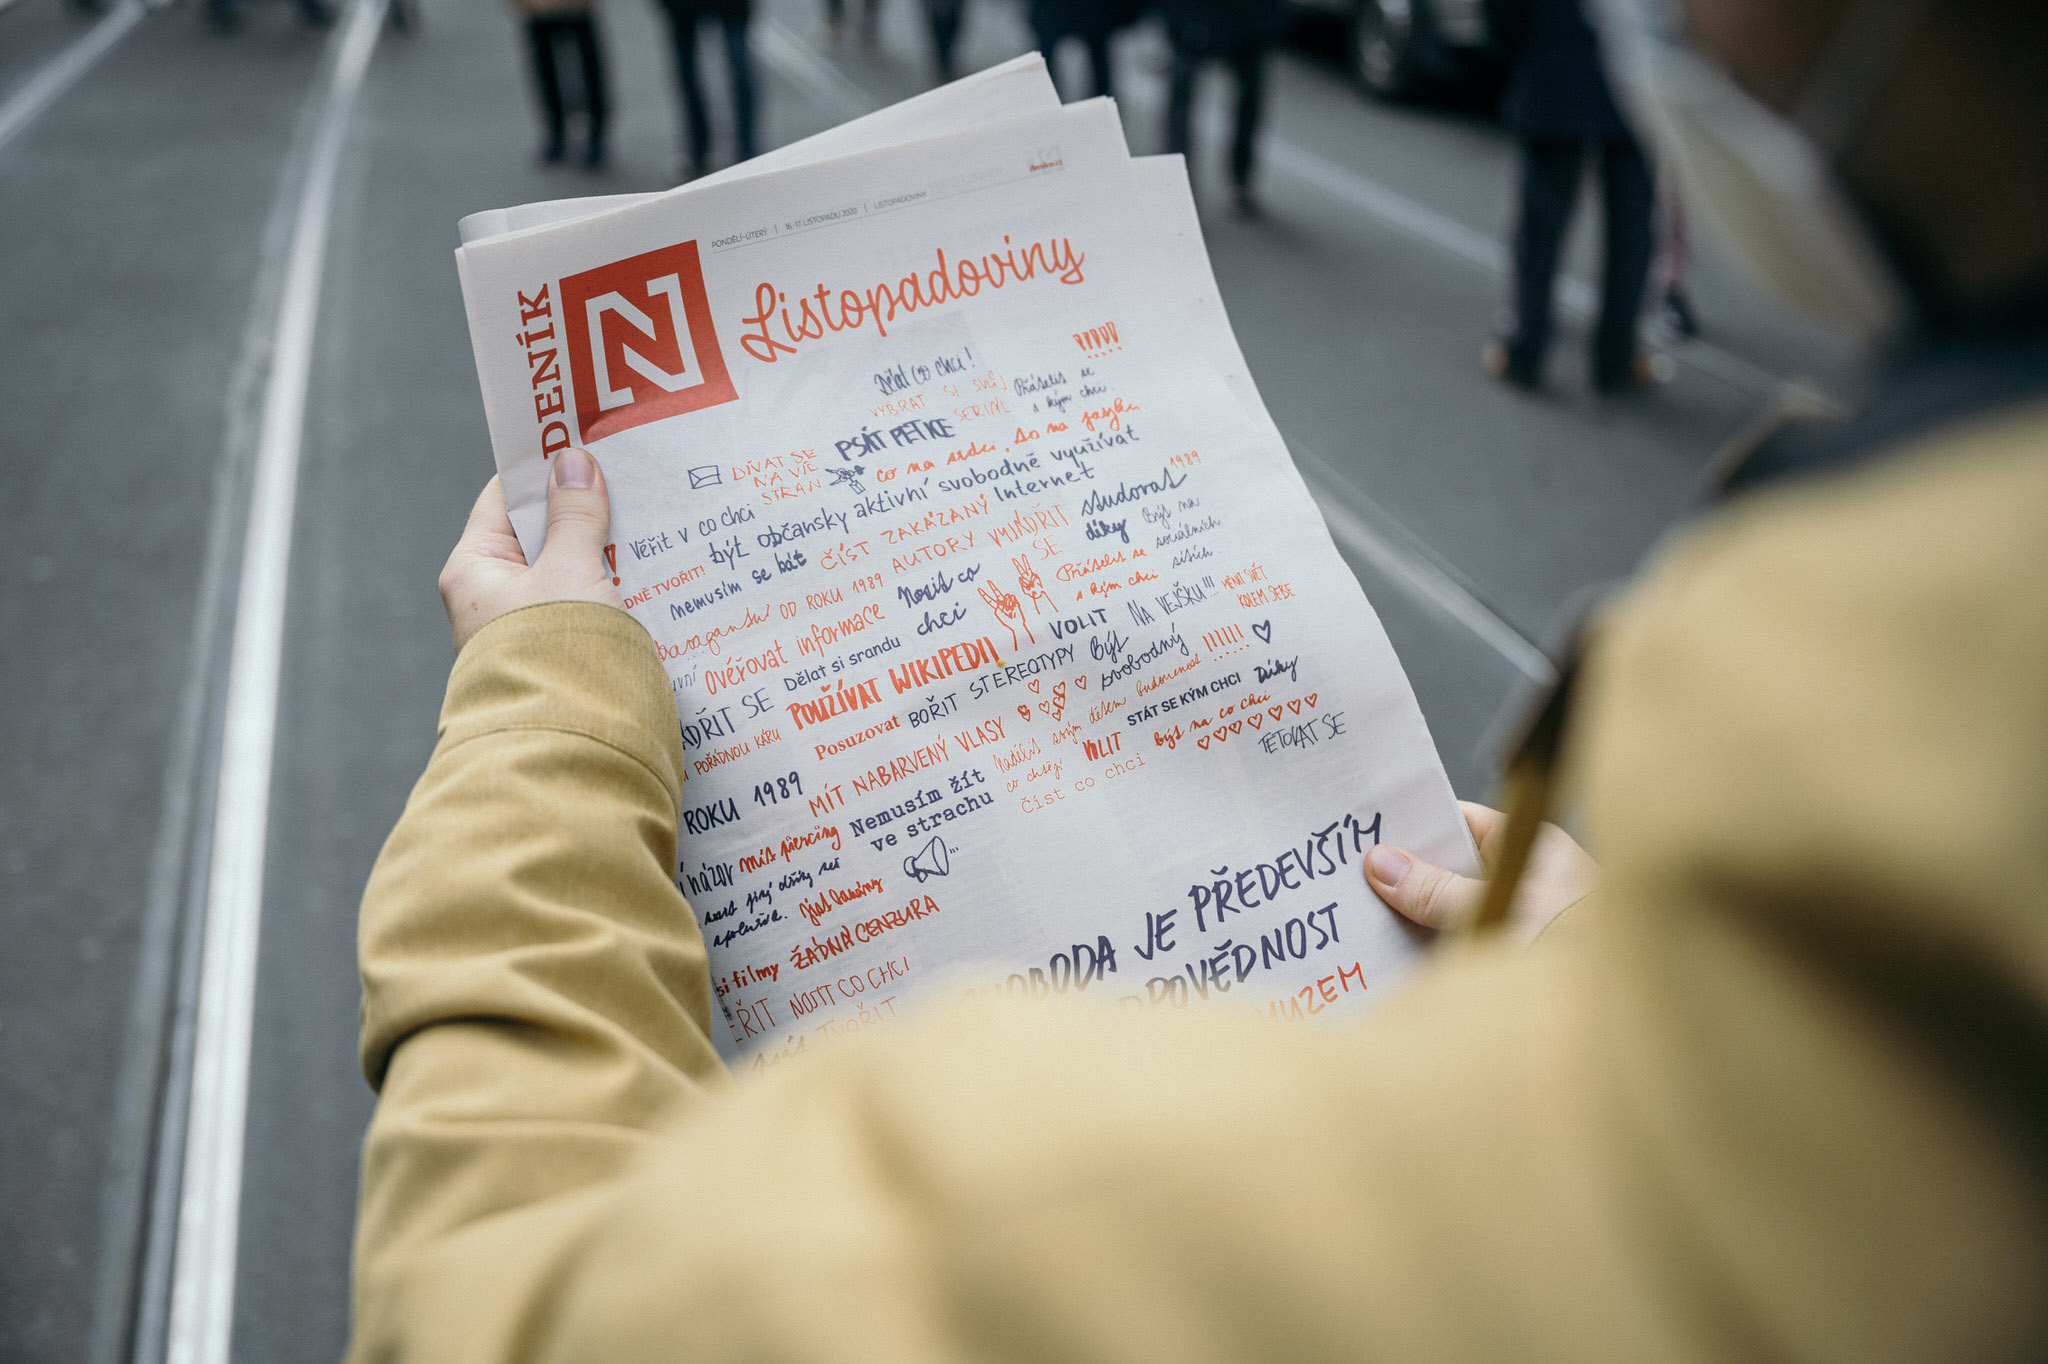 PONDĚLÍ–ÚTERÝ | 16.–17. LISTOPADU 2020 | LISTOPADOVINY
DENÍK
N
Listopadoviny
Dělat co chci!
VYBRAT SI SVŮJ SERIÁL
Přátelit se s kým chci.
PSÁT PETICE
DÍVAT SE NA VÍC STRAN
co na srdci, to na jazyku
Věřit v co chci
být občansky aktivní
svobodně využívat Internet
1989
DNĚ TVOŘIT!
nemusím se bát
ČÍST ZAKÁZANÝ AUTORY
VYJÁDŘIT SE
studovat
díky
Být na sociálních sítích.
OD ROKU 1989
Nosit co chci
Přátelit se s kým chci
ověřovat informace
Dělat si srandu
VOLIT
NA VEJŠKU!!!
MĚNIT SVĚT KOLEM SEBE
ÁDŘIT SE
POUŽÍVAT WIKIPEDII
BOŘIT STEREOTYPY
Být svobodný
!!!!!!
POŘÁDNOU KÁRU
Posuzovat
STÁT SE KÝM CHCI
Díky
ROKU 1989
MÍT NABARVENÝ VLASY
co chtějí
VOLIT
Být na co chci
TETOVAT SE
názor
mít piercing
Nemusím žít ve strachu
číst co chci
si filmy
ŽÁDNÁ CENZURA
NOSIT CO CHCI
TVOŘIT
SVOBODA JE PŘEDEVŠÍM
DPOVĚDNOST
MUZEM